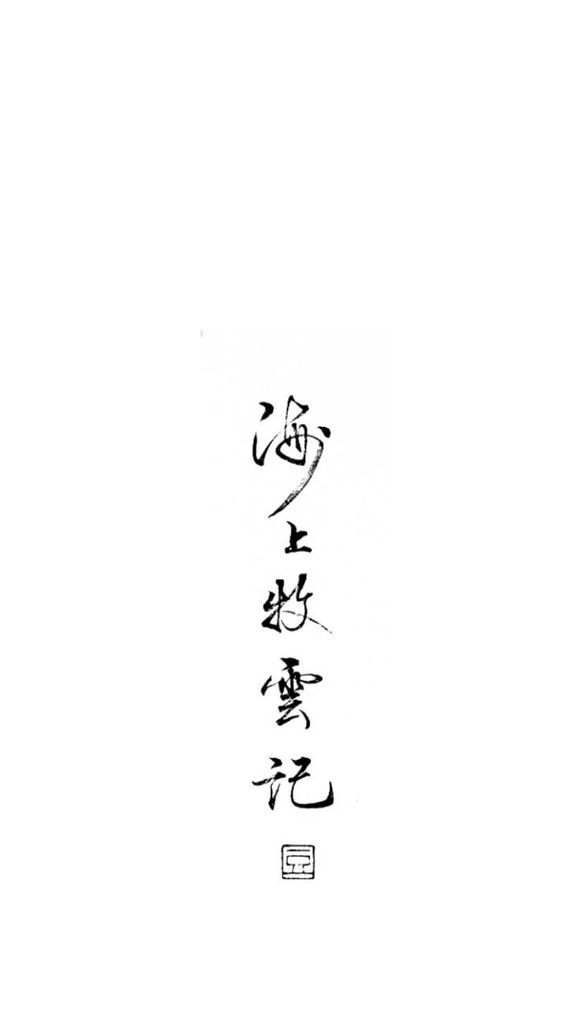 海上牧雲記